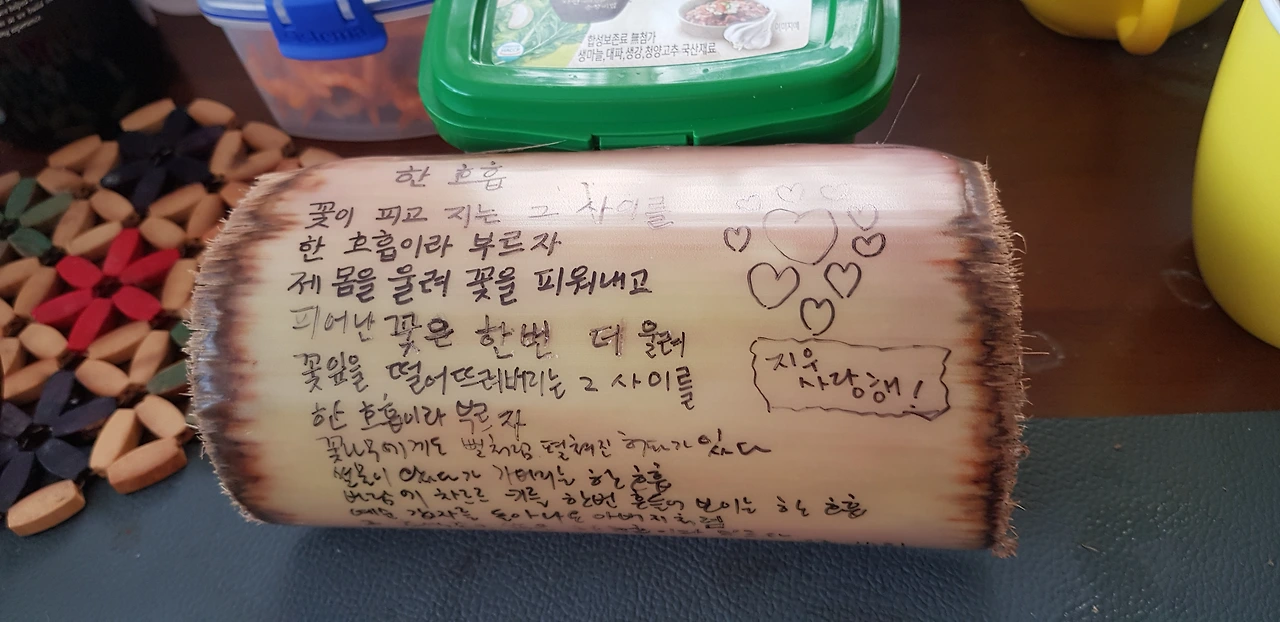 합성보존료 無첨가
생마늘,대파,생강,청양고추 국산재료
한 호흡
꽃이 피고 지는 그 사이를
한 호흡이라 부르자
제 몸을 울려 꽃을 피워내고
피어난 꽃은 한번 더 울려
꽃잎을 떨어뜨려버리는 그 사이를
한 호흡이라 부르자
꽃나무에게도 뻘처럼 펼쳐진 허파가 있다
썰물이 왔다가 가버리는 한 호흡
바람에 차르르 키를 한번 흔들어 보이는 한 호흡
예순 갑자를 돌아나온 아버지처럼
지우
사랑해!